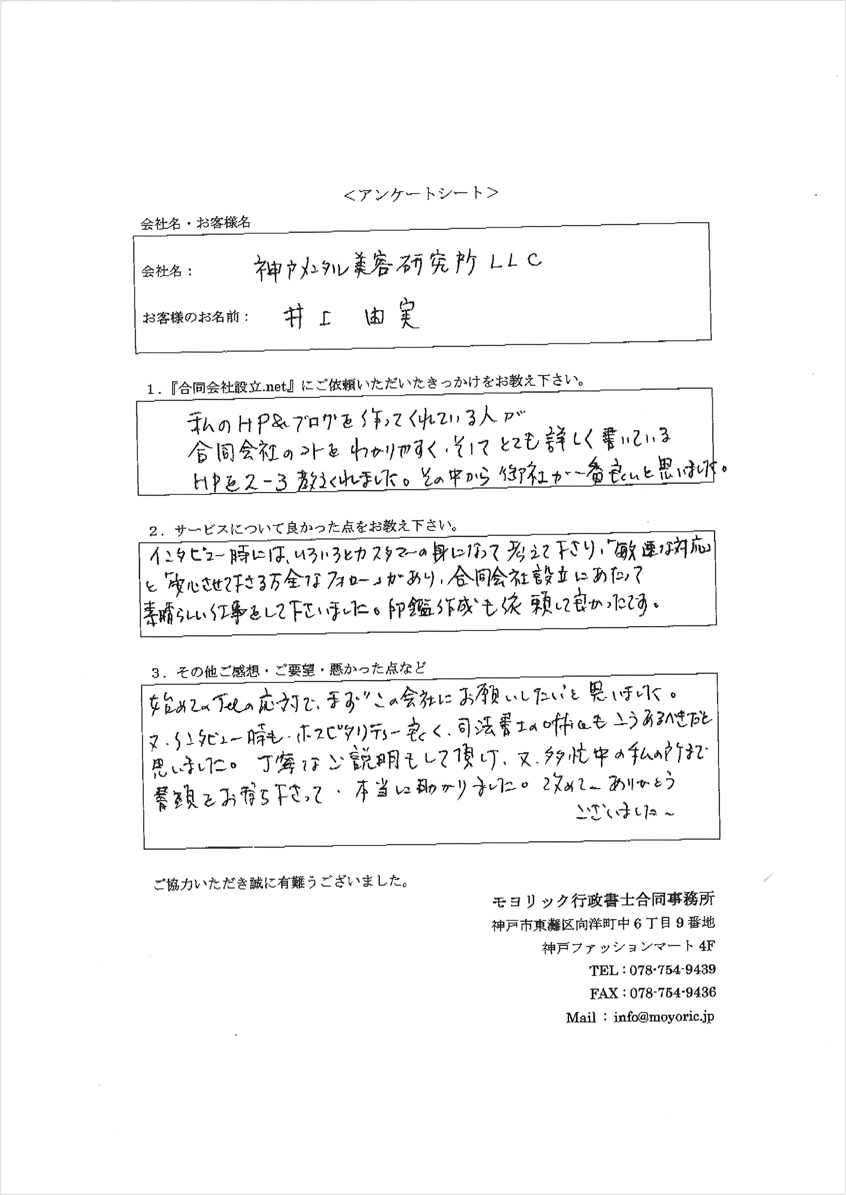 ＜アンケートシート＞
会社名・お客様名
会社名： 神戸メンタル美容研究所 LLC
お客様のお名前： 井上 由実
1．『合同会社設立.net』にご依頼いただいたきっかけをお教え下さい。
私のHP&ブログを作ってくれている人が
合同会社のコトをわかりやすく、そしてとても詳しく書いている
HPを2－3教えくれました。その中から御社が一番良いと思いました。
2．サービスについて良かった点をお教え下さい。
インタビュー時には、いろいろとカスタマーの身になって考えて下さり、「敏速な対応」
と「安心させて下さる万全なフォロー」があり、合同会社設立にあたって
素晴らしい仕事をして下さいました。印鑑作成も依頼して良かったです。
3．その他ご感想・ご要望・悪かった点など
始めてのTelの応対で、まず"この会社にお願いしたいと思いました。
又、インタビュー時も・ホスピタリティー良く、司法書士のofficeもこうあるべきだと
思いました。丁寧なご説明もして頂け、又、多忙中の私の所まで
書類をお持ち下さって、本当に助かりました。改めて〜ありがとう
ございました〜
ご協力いただき誠に有難うございました。
モヨリック行政書士合同事務所
神戸市東灘区向洋町中6丁目9番地
神戸ファッションマート 4F
TEL：078-754-9439
FAX：078-754-9436
Mail：info@moyoric.jp